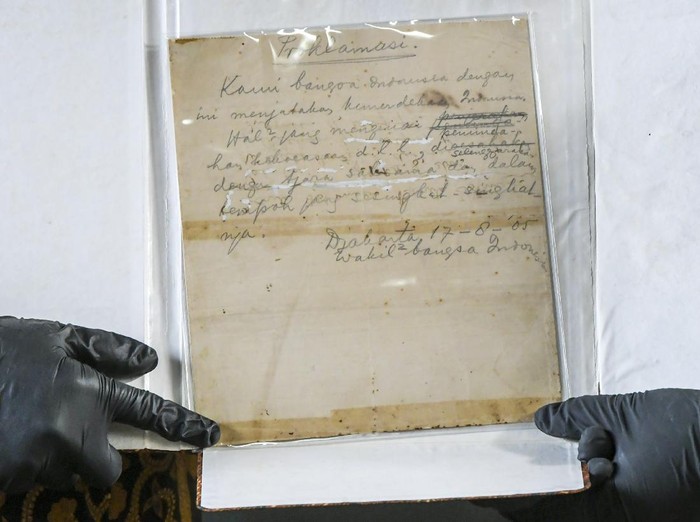 Proklamasi.
Kami bangsa Indonesia dengan
ini menjatakan kemerdekaan Indonesia.
Hal² jang mengenai
peminda-
han kekoeasaan d.l.l.,
diselenggarakan
dengan tjara saksama dan dalam
tempoh jang sesingkat-singkat-
nja.
Djakarta, 17-8-'05
Wakil² bangsa Indonesia